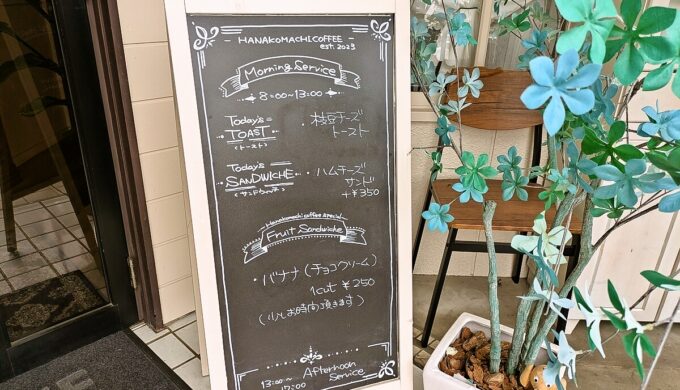 - HANAKOMACHICOFFEE -
est. 2023
Morning Service
8:00~13:00
Today's
TOAST
(トースト)
・枝豆チーズ
トースト
Today's
SANDWICHE
(サンドウィッチ)
・ハムチーズ
サンド
+¥350
Hanakomachicoffee special
Fruit Sandwiche
・バナナ(チョコクリーム)
1cut ¥250
(少しお時間頂きます)
13:00~
17:00
Afternoon
Service